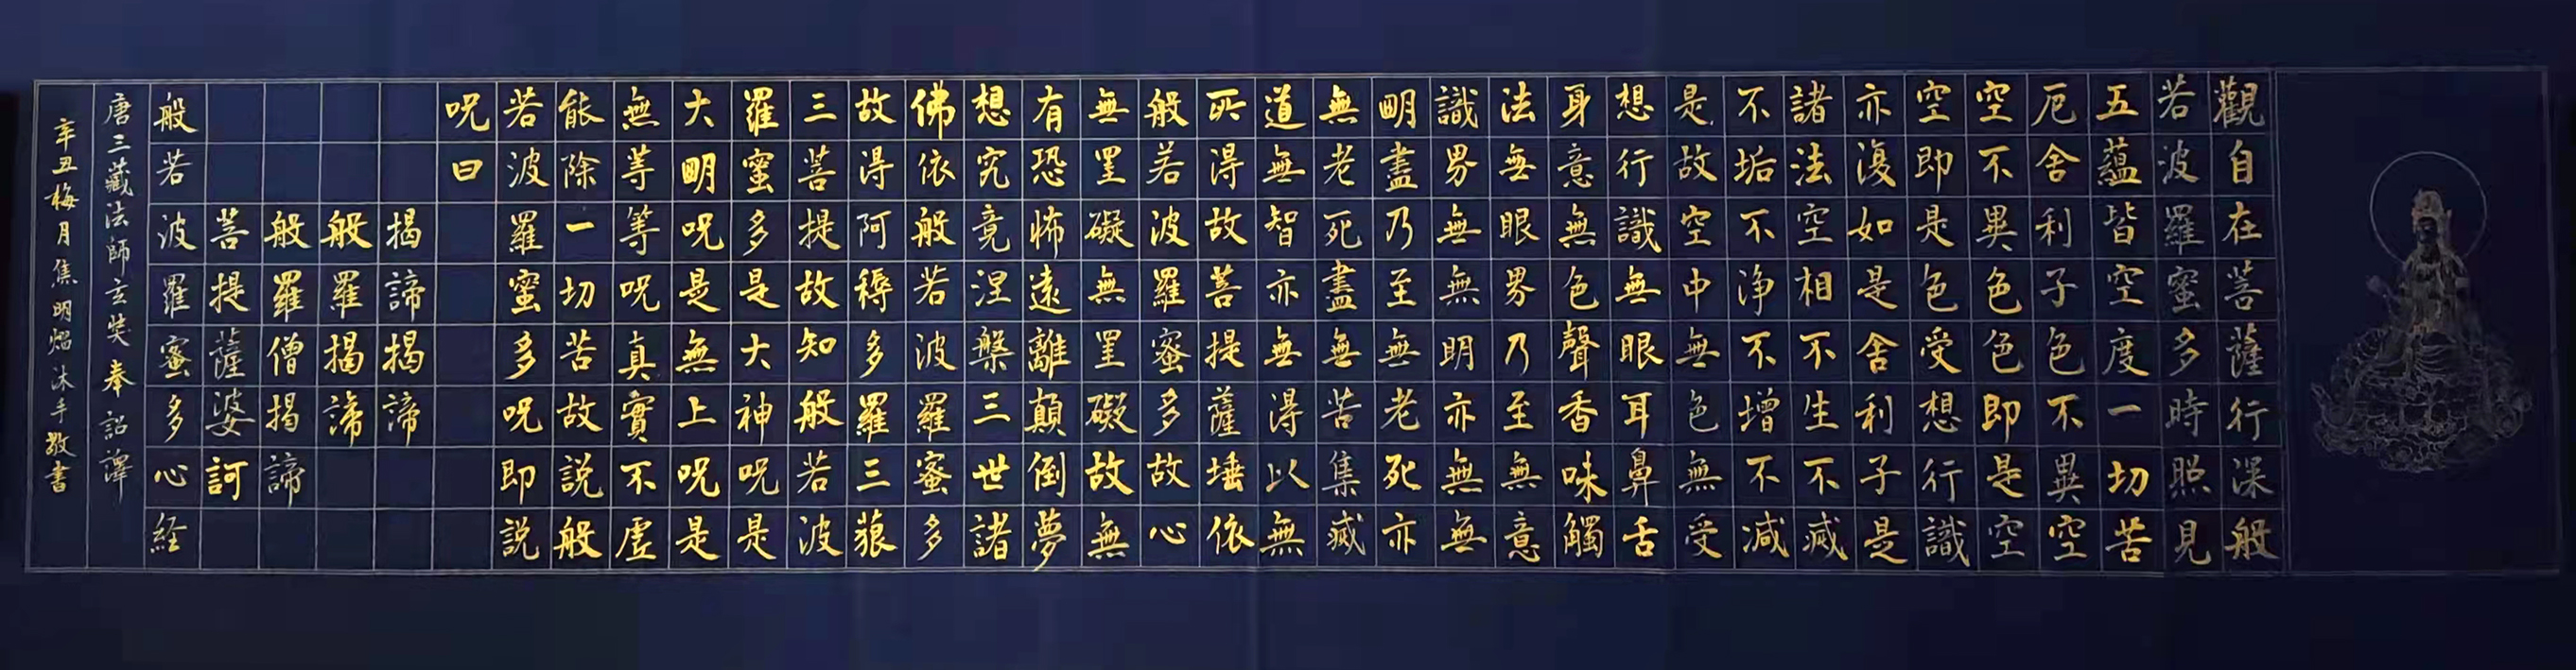 觀自在菩薩行深般
若波羅蜜多時照見
五蘊皆空度一切苦
厄舍利子色不異空
空不異色色即是空
空即是色受想行識
亦復如是舍利子是
諸法空相不生不滅
不垢不净不增不减
是故空中無色無受
想行識無眼耳鼻舌
身意無色聲香味觸
法無眼界乃至無意
識界無無明亦無無
明盡乃至無老死亦
無老死盡無苦集滅
道無智亦無得以無
所得故菩提薩埵依
般若波羅蜜多故心
無罣礙無罣礙故無
有恐怖遠離顛倒夢
想究竟涅槃三世諸
佛依般若波羅蜜多
故得阿耨多羅三藐
三菩提故知般若波
羅蜜多是大神呪是
大明呪是無上呪是
無等等呪真實不虛
能除一切苦故說般
若波羅蜜多呪即說
呪曰
揭諦揭諦
般羅揭諦
般羅僧揭諦
菩提薩婆訶
般若波羅蜜多心経
唐三藏法師玄奘奉詔譯
辛丑梅月焦明熠沐手敬書